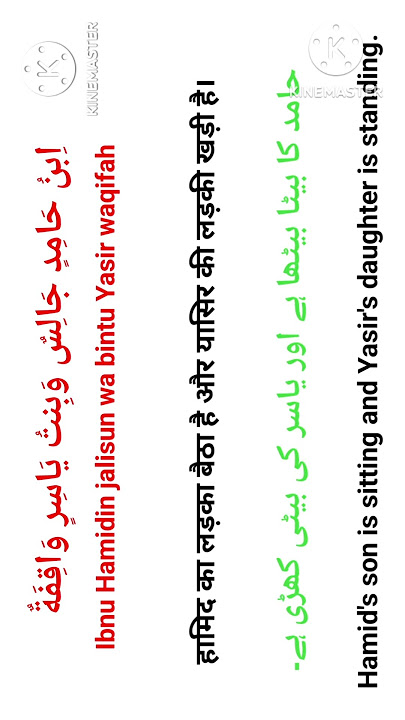 اِبنُ حَامِدٍ جَالِسٌ وَبِنتُ يَاسِرٍ وَاقِفَةٌ
Ibnu Hamidin jalisun wa bintu Yasir waqifah
हामिद का लड़का बैठा है और यासिर की लड़की खड़ी है।
حامد کا بیٹا بیٹھا ہے اور یاسر کی بیٹی کھڑی ہے۔
Hamid's son is sitting and Yasir's daughter is standing.
K
KINEMASTER
K
KINEMASTER